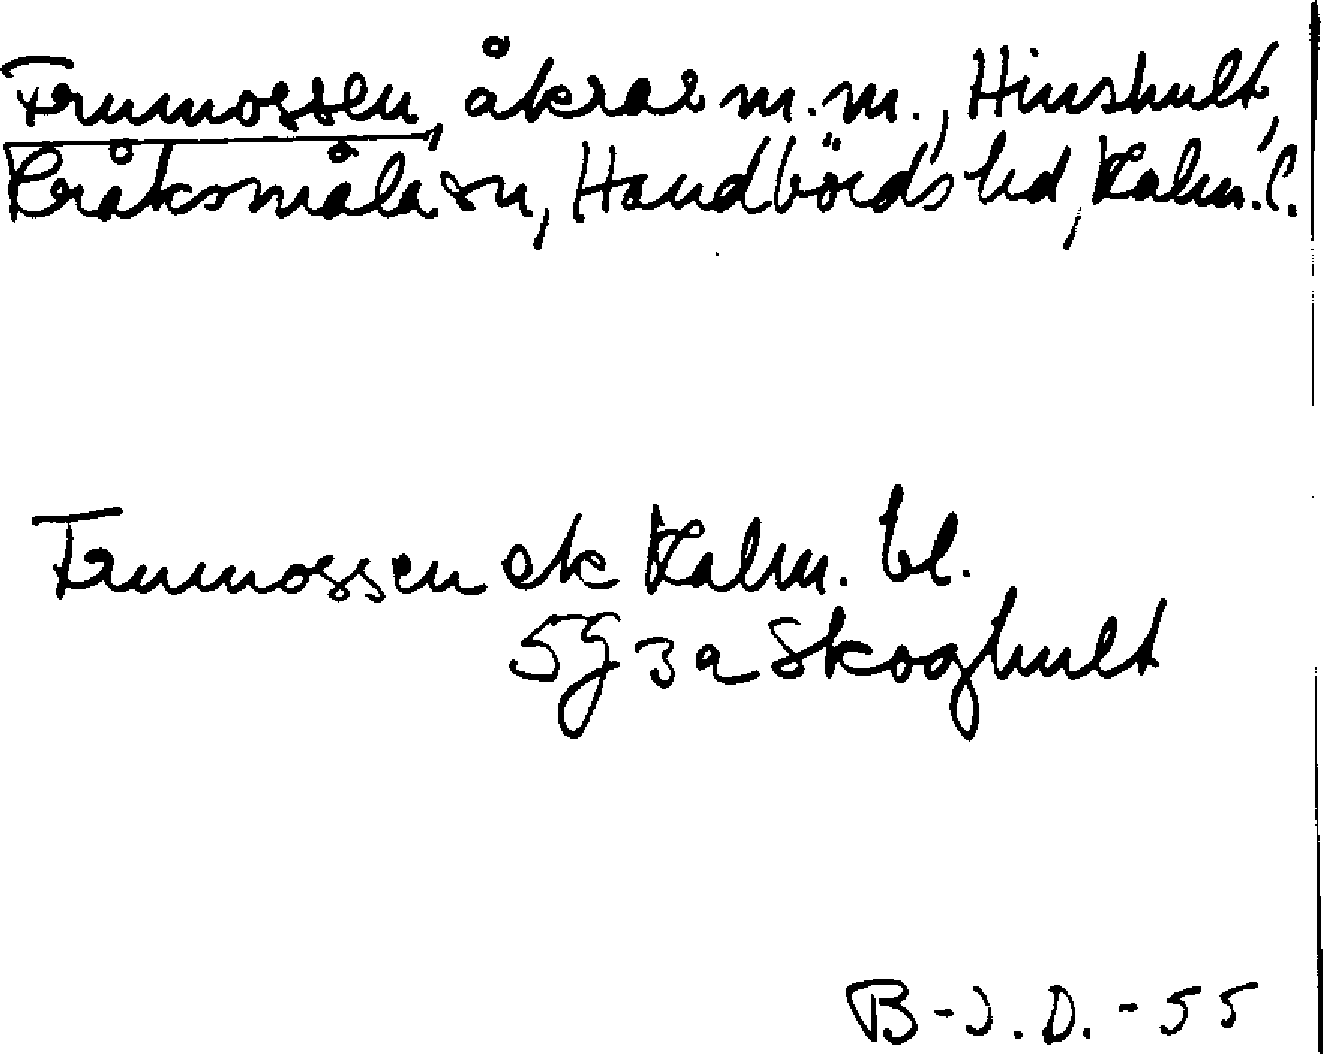 Frumossen, åkrar m.m., Hinshult,
Kråksmåla sn, Handbörds hd, Kalm. l.
Frumossen ek Kalm. bl.
5g 3a Skoghult
B-J.D.-55